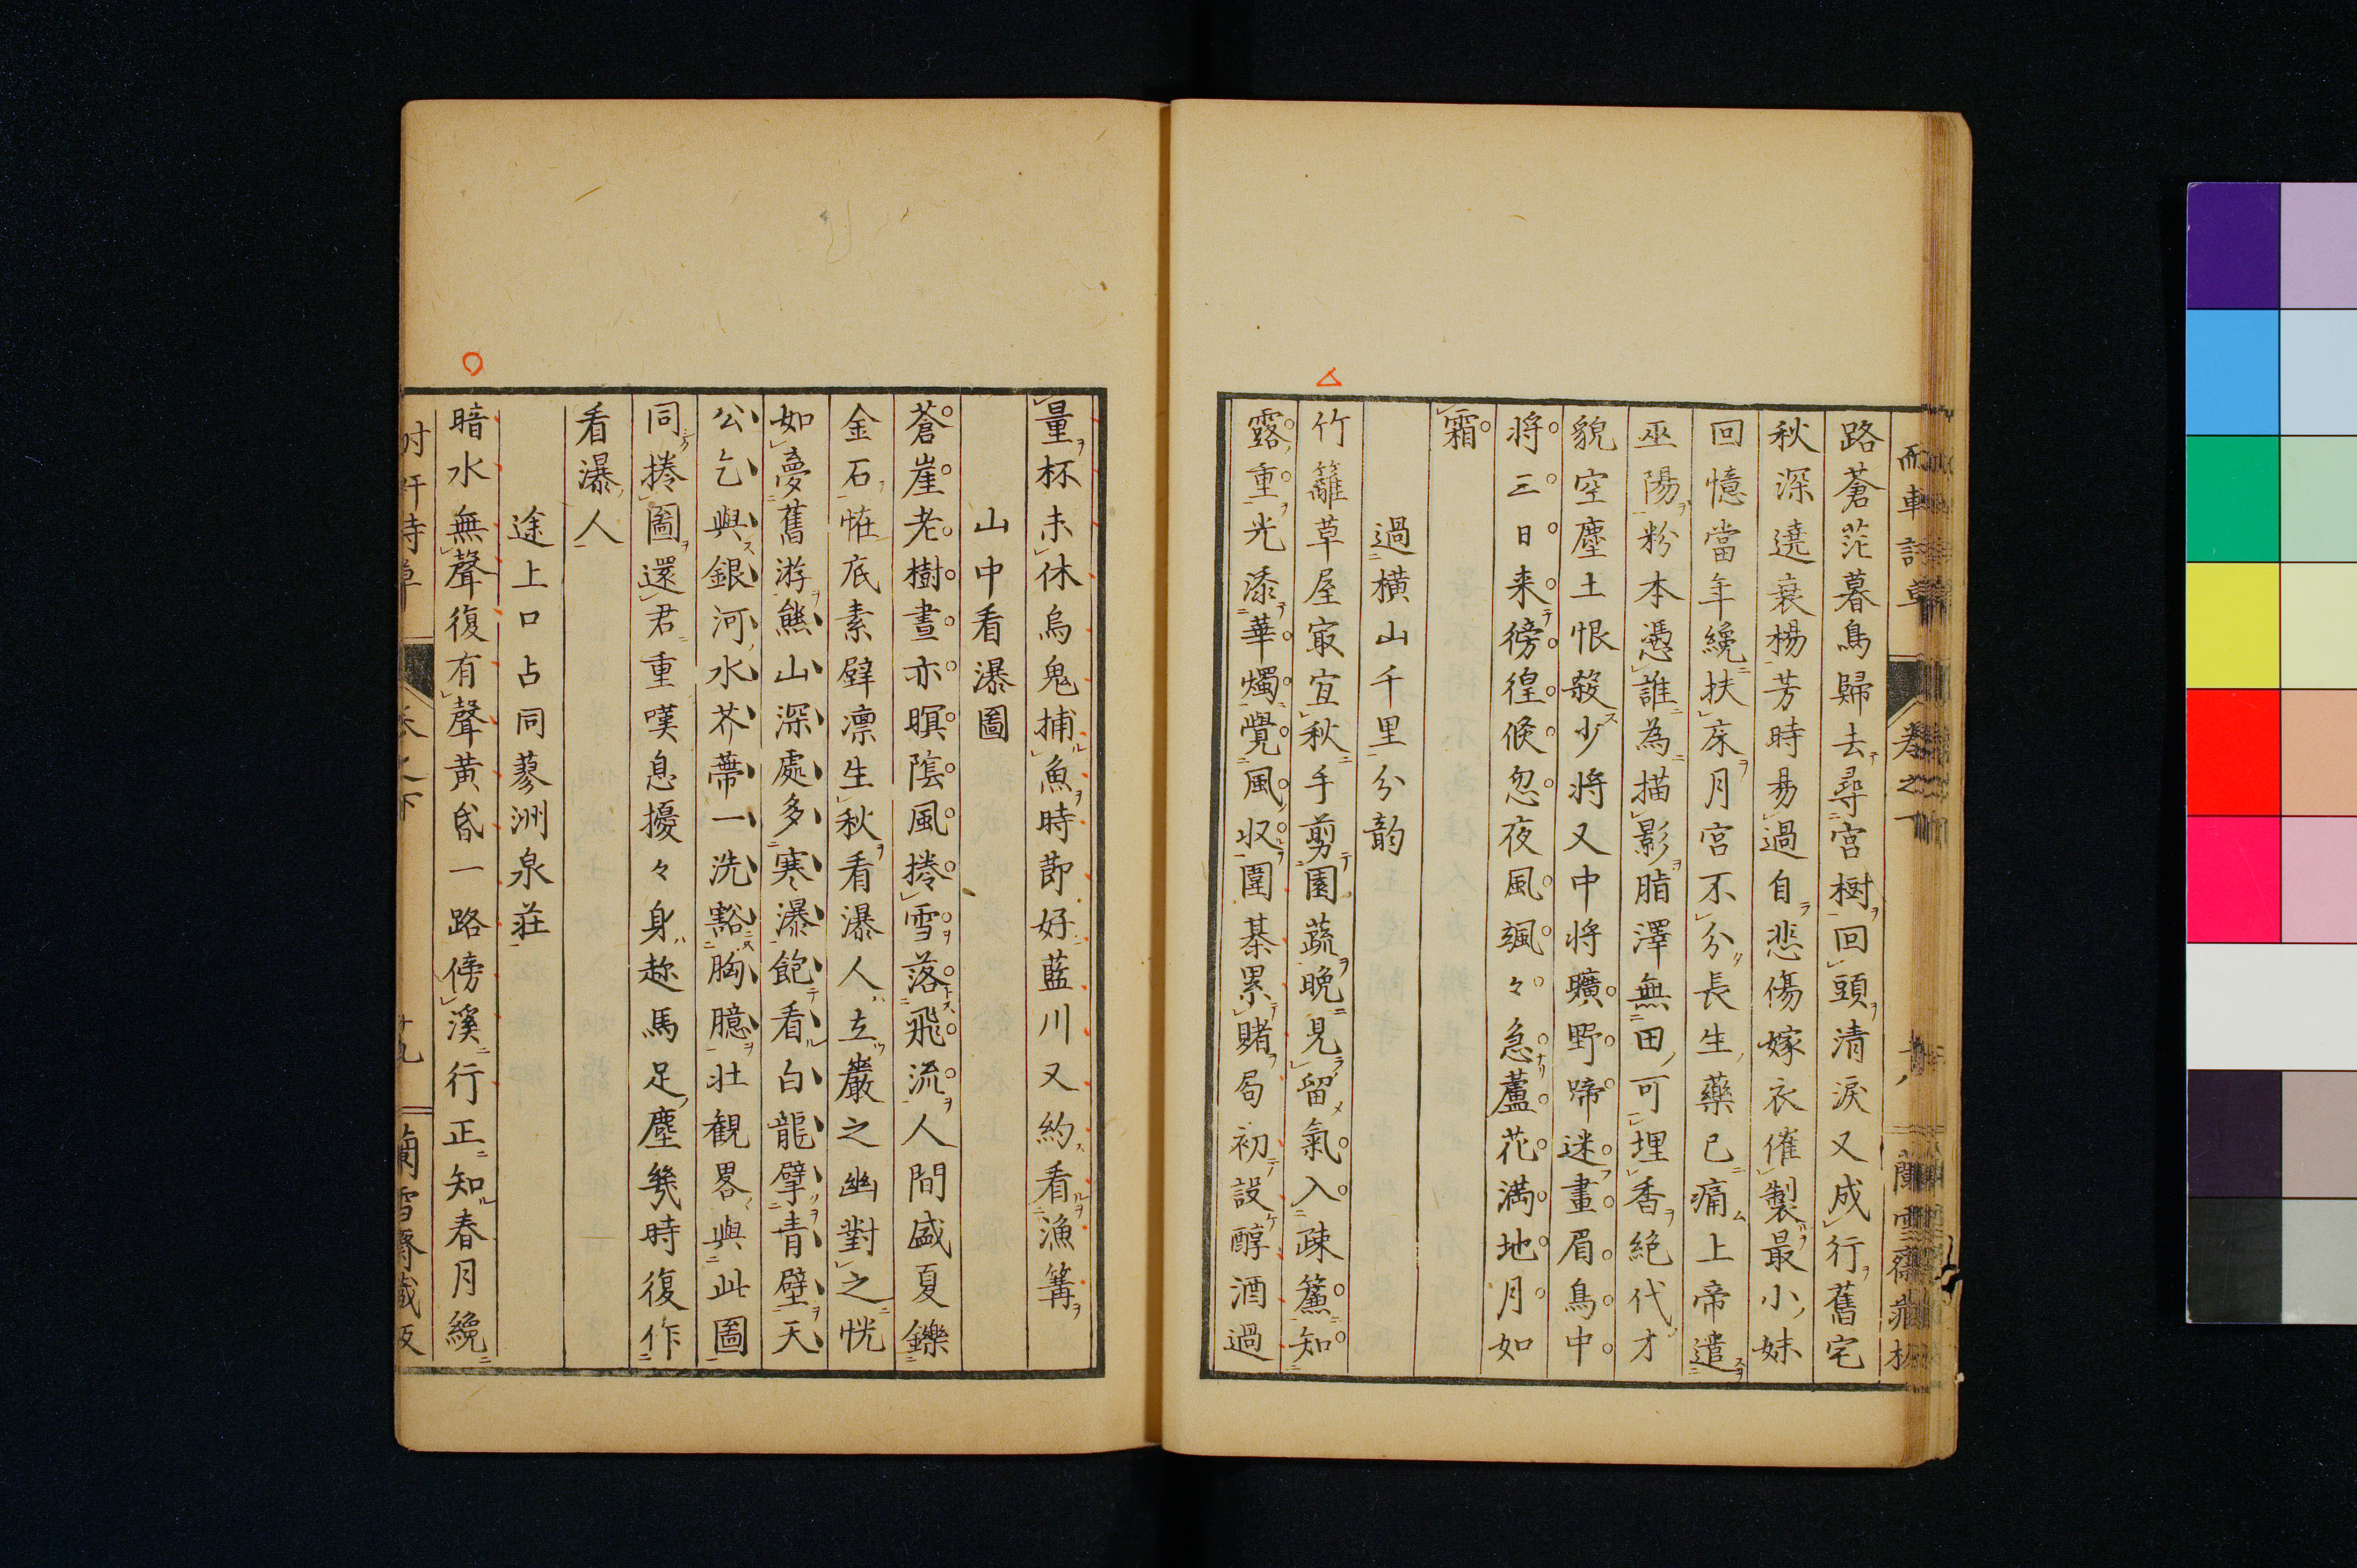 路蒼茫暮鳥歸去尋宮樹回頭清淚又成行舊宅
秋深遶衰楊芳時易過自悲傷嫁衣催製最小妹
回憶當年纔扶床月宮不分長生藥已痛上帝遣
巫陽粉本憑誰為描影脂澤無田可埋香絕代才
貌空塵土恨殺少將又中將曠野啼迷畫眉鳥中
將三日来徬徨倏忽夜風颯々急蘆花満地月如
霜
過橫山千里分韵
竹籬草屋㝡宜秋手剪園蔬晚見留氣入疎簾知
露重光添華燭覺風収圍棊累賭局初設醇酒過
量杯未休烏鬼捕魚時節好藍川又約看漁篝
山中看瀑圖
蒼崖老樹晝亦暝陰風捲雪落飛流人間盛夏鑠
金石恠底素壁凛生秋看瀑人立巖之幽對之恍
如夢舊游熊山深處多寒瀑飽看白龍擘青壁天
公乞與銀河水芥蔕一洗豁胸臆壯観畧與此圖
同捲圖還君重嘆息擾々身趂馬足塵幾時復作
看瀑人
途上口占同蓼洲泉荘
暗水無聲復有聲黄昏一路傍溪行正知春月纔
卷之下
十九
蘭雪齋藏版